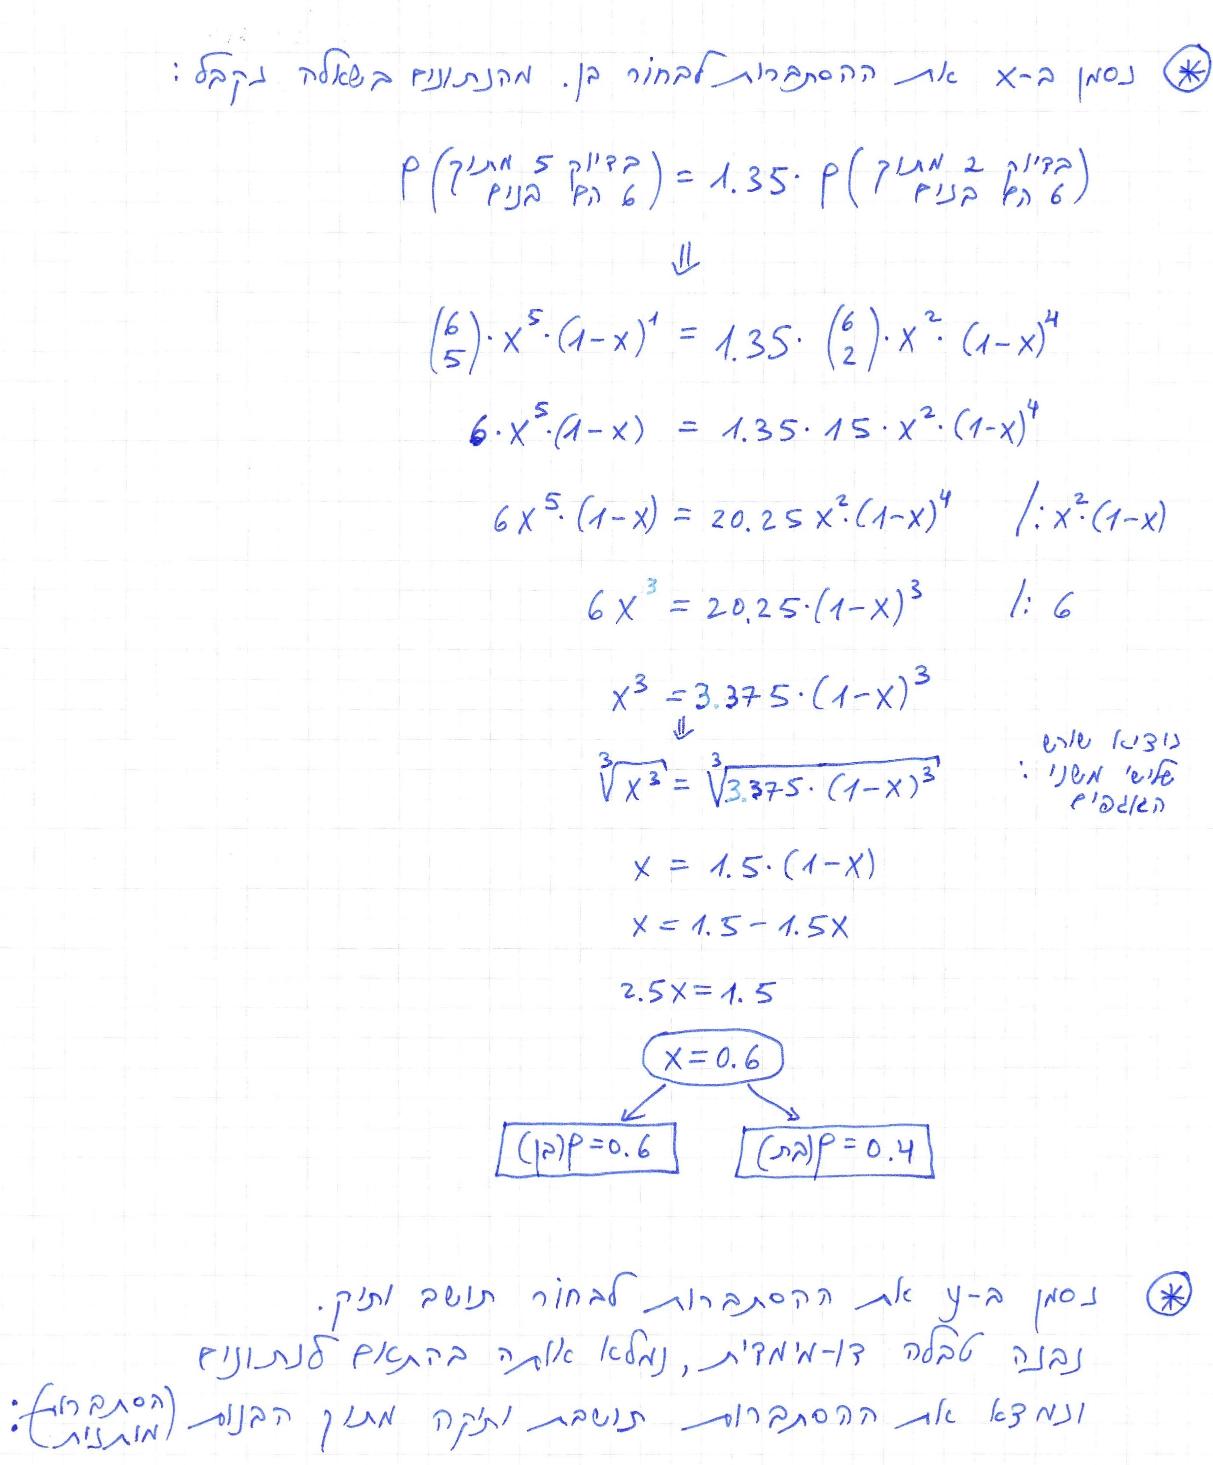 נסמן ב-x את ההסתברות לבחור בן. מהנתונים בשאלה נקבל:
P(בדיוק 5 מתוך 6 הם בנים) = 1.35 · P(בדיוק 2 מתוך 6 הם בנים)
⇓
(6 5) · x⁵ · (1-x)¹ = 1.35 · (6 2) · x² · (1-x)⁴
6 · x⁵ · (1-x) = 1.35 · 15 · x² · (1-x)⁴
6x⁵ · (1-x) = 20.25x² · (1-x)⁴ /: x² · (1-x)
6x³ = 20.25 · (1-x)³ /: 6
x³ = 3.375 · (1-x)³
⇓
∛x³ = ∛(3.375 · (1-x)³) נוציא שורש שלישי משני האגפים:
x = 1.5 · (1-x)
x = 1.5 - 1.5x
2.5x = 1.5
x = 0.6
P(בן) = 0.6 P(בת) = 0.4
נסמן ב-y את ההסתברות לבחור תושב ותיק.
נבנה טבלה דו-מימדית, נמלא אותה בהתאם לנתונים
ונמצא את ההסתברות תושבת ותיקה מתוך הבנות (הסתברות מותנית):